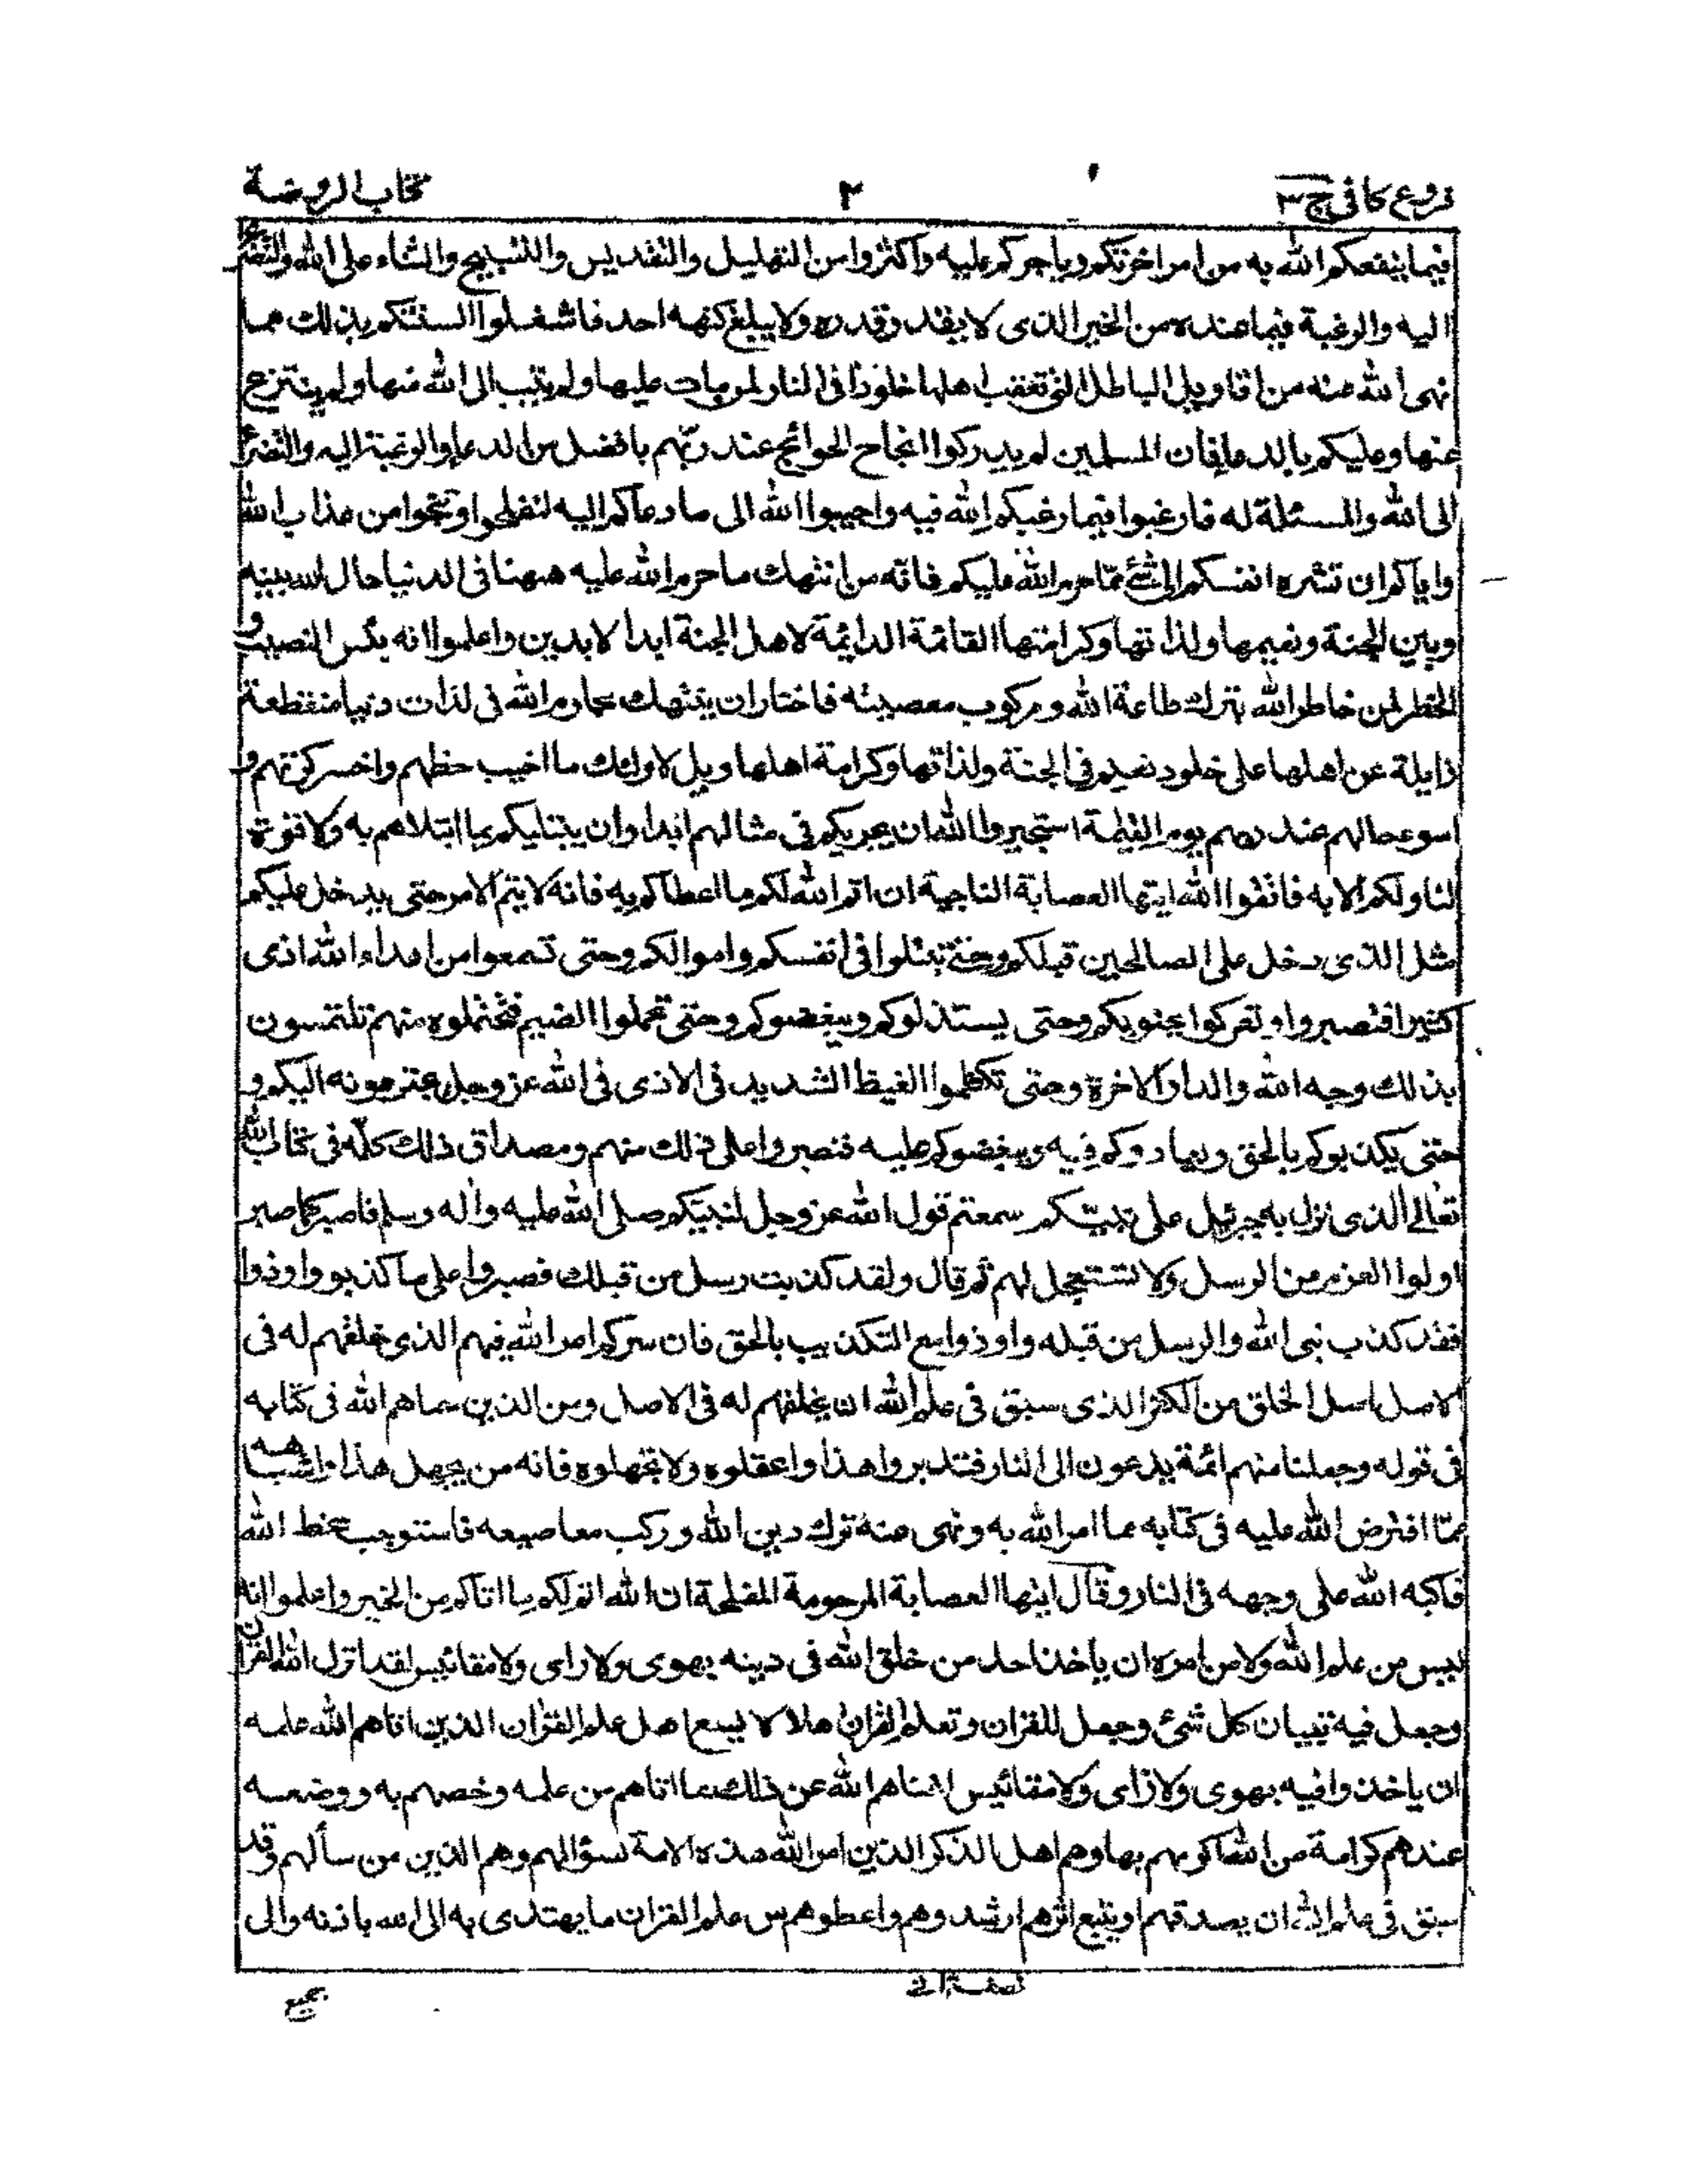 فروع كافى ج ٣
٢
كتاب الروضة
فيما ينفعكم الله به من امر اخرتكم وياجركم عليه واكثروا من التهليل والتقديس والتسبيح والثناء على الله والتضرع
اليه والرغبة فيما عنده من الخير الذى لا يقدر قدره ولا يبلغ كنهه احد فاشغلوا السنتكم بذلك عما
نهى الله عنه من اقاويل الباطل التى تعقب اهلها خلودا فى النار لمن مات عليها ولم يتب الى الله منها ولم ينتزع
عنها وعليكم بالدعاء فان المسلمين لم يدركوا انجاح الحوائج عند ربهم بافضل من الدعاء والرغبة اليه والتضرع
الى الله والمسئلة له فارغبوا فيما رغبكم الله فيه واجيبوا الله الى ما دعاكم اليه لتفلحوا وتنجوا من عذاب الله
واياكم ان تشره انفسكم الى شئ مما حرم الله عليكم فانه من انتهك ما حرم الله عليه ههنا فى الدنيا حال الله بينه
وبين الجنة ونعيمها ولذاتها وكرامتها القائمة الدائمة لاهل الجنة ابدا لابدين واعلموا انه بئس النصيب و
الخطر لمن خاطر الله بترك طاعة الله وركوب معصيته فاختار ان ينتهك محارم الله فى لذات دنيا منقطعة
زايلة عن اهلها على خلود نعيم فى الجنة ولذاتها وكرامة اهلها ويل لاولئك ما اخيب حظهم واخسر كرتهم و
اسوء حالهم عند ربهم يوم القيمة استجيروا الله ان يجريكم فى مثالهم ابدا وان يبتليكم بما ابتلاهم به ولا قوة
لنا ولكم الا به فاتقوا الله ايتها العصابة الناجية ان اتم الله لكم ما اعطاكم به فانه لا يتم الامر حتى يدخل عليكم
مثل الذى دخل على الصالحين قبلكم وحتى تبتلوا فى انفسكم واموالكم وحتى تسمعوا من اعداء الله اذى
كثيرا فتصبروا وتعركوا بجنوبكم وحتى يستذلوكم ويبغضوكم وحتى تحملوا الضيم فتحتملوه منهم تلتمسون
بذلك وجه الله والدار الاخرة وحتى تكظموا الغيظ الشديد فى الاذى فى الله عز وجل يجترمونه اليكم و
حتى يكذبوكم بالحق ويعادوكم فيه ويبغضوكم عليه فتصبروا على ذلك منهم ومصداق ذلك كله فى كتاب الله
تعالى الذى نزل به جبرئيل على نبيكم سمعتم قول الله عز وجل لنبيكم صلى الله عليه واله وسلم فاصبر كما صبر
اولوا العزم من الرسل ولا تستعجل لهم ثم قال ولقد كذبت رسل من قبلك فصبروا على ما كذبوا واوذوا
فقد كذب نبى الله والرسل من قبله واوذوا مع التكذيب بالحق فان سركم امر الله فيهم الذى خلقهم له فى
الاصل اصل الخلق من الكفر الذى سبق فى علم الله ان يخلقهم له فى الاصل ومن الذين سماهم الله فى كتابه
فى قوله وجعلنا منهم ائمة يدعون الى النار فتدبروا هذا واعقلوه ولا تجهلوه فانه من يجهل هذا واشباهه
مما افترض الله عليه فى كتابه مما امر الله به ونهى عنه ترك دين الله وركب معاصيه فاستوجب سخط الله
فاكبه الله على وجهه فى النار وقال ايتها العصابة المرحومة المفلحة ان الله اتم لكم ما اتاكم من الخير واعلموا انه
ليس من علم الله ولا من امره ان ياخذ احد من خلق الله فى دينه بهوى ولا راى ولا مقائيس لقد انزل الله القران
وجعل فيه تبيان كل شئ وجعل للقران وتعلم القران اهلا لا يسع اهل علم القران الذين اتاهم الله علمه
ان ياخذوا فيه بهوى ولا راى ولا مقائيس اغناهم الله عن ذلك بما اتاهم من علمه وخصهم به ووضعه
عندهم كرامة من الله اكرمهم بها وهم اهل الذكر الذين امر الله هذه الامة بسؤالهم وهم الذين من سألهم وقد
سبق فى علم الله ان يصدقهم ويتبع اثرهم ارشدوهم واعطوهم من علم القران ما يهتدى به الى الله باذنه والى
بجميع